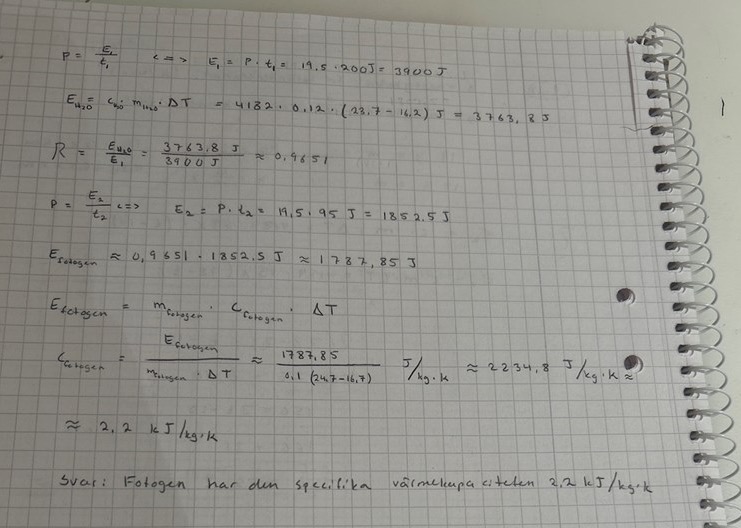 P = E₁/t₁ <=> E₁ = P · t₁ = 19,5 · 200J = 3900 J
E_H₂O = C_H₂O · m_H₂O · ΔT = 4182 · 0,12 · (23,7 - 16,2) J = 3763,8 J
R = E_H₂O/E₁ = 3763,8 J/3900 J ≈ 0,9651
P = E₂/t₂ <=> E₂ = P · t₂ = 19,5 · 95 J = 1852,5 J
E_fotogen ≈ 0,9651 · 1852,5 J ≈ 1787,85 J
E_fotogen = m_fotogen · C_fotogen · ΔT
C_fotogen = E_fotogen/(m_fotogen · ΔT) ≈ 1787,85/(0,1 (24,7-16,7)) J/kg·K ≈ 2234,8 J/kg·K ≈
≈ 2,2 kJ/kg·K
Svar: Fotogen har den specifika värmekapaciteten 2,2 kJ/kg·K